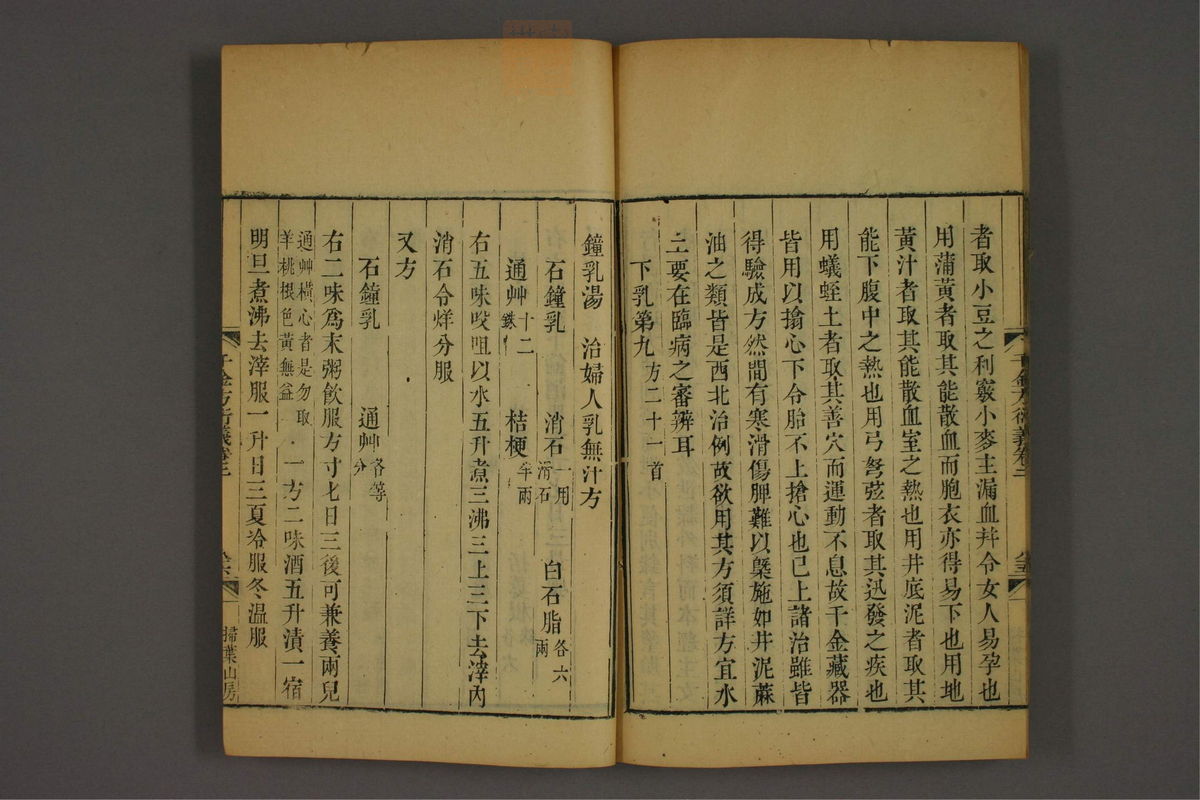 者取小豆之利竅小麥主漏血幷令女人易孕也
用蒲黃者取其能散血而胞衣亦得易下也用地
黃汁者取其能散血室之熱也用井底泥者取其
能下腹中之熱也用弓弩弦者取其迅發之疾也
用蟻蛭土者取其善穴而運動不息故千金藏器
皆用以搨心下令胎不上搶心也已上諸治雖皆
得驗成方然間有寒滑傷脾難以槩施如井泥蔴
油之類皆是西北治例故欲用其方須詳方宜水
土要在臨病之審辨耳
下乳第九 方二十一首
鐘乳湯 治婦人乳無汁方
石鐘乳 消石 一用滑石 白石脂 各六兩
通艸 十二銖 桔梗 半兩
右五味㕮咀以水五升煮三沸三上三下去滓內
消石令烊分服
又方
石鐘乳 通艸 各等分
右二味爲末粥飮服方寸七日三後可兼養兩兒
通艸橫心者是勿取羊桃根色黃無益 一方二味酒五升漬一宿
明旦煮沸去滓服一升日三夏冷服冬溫服
千金方衍義卷三
掃葉山房